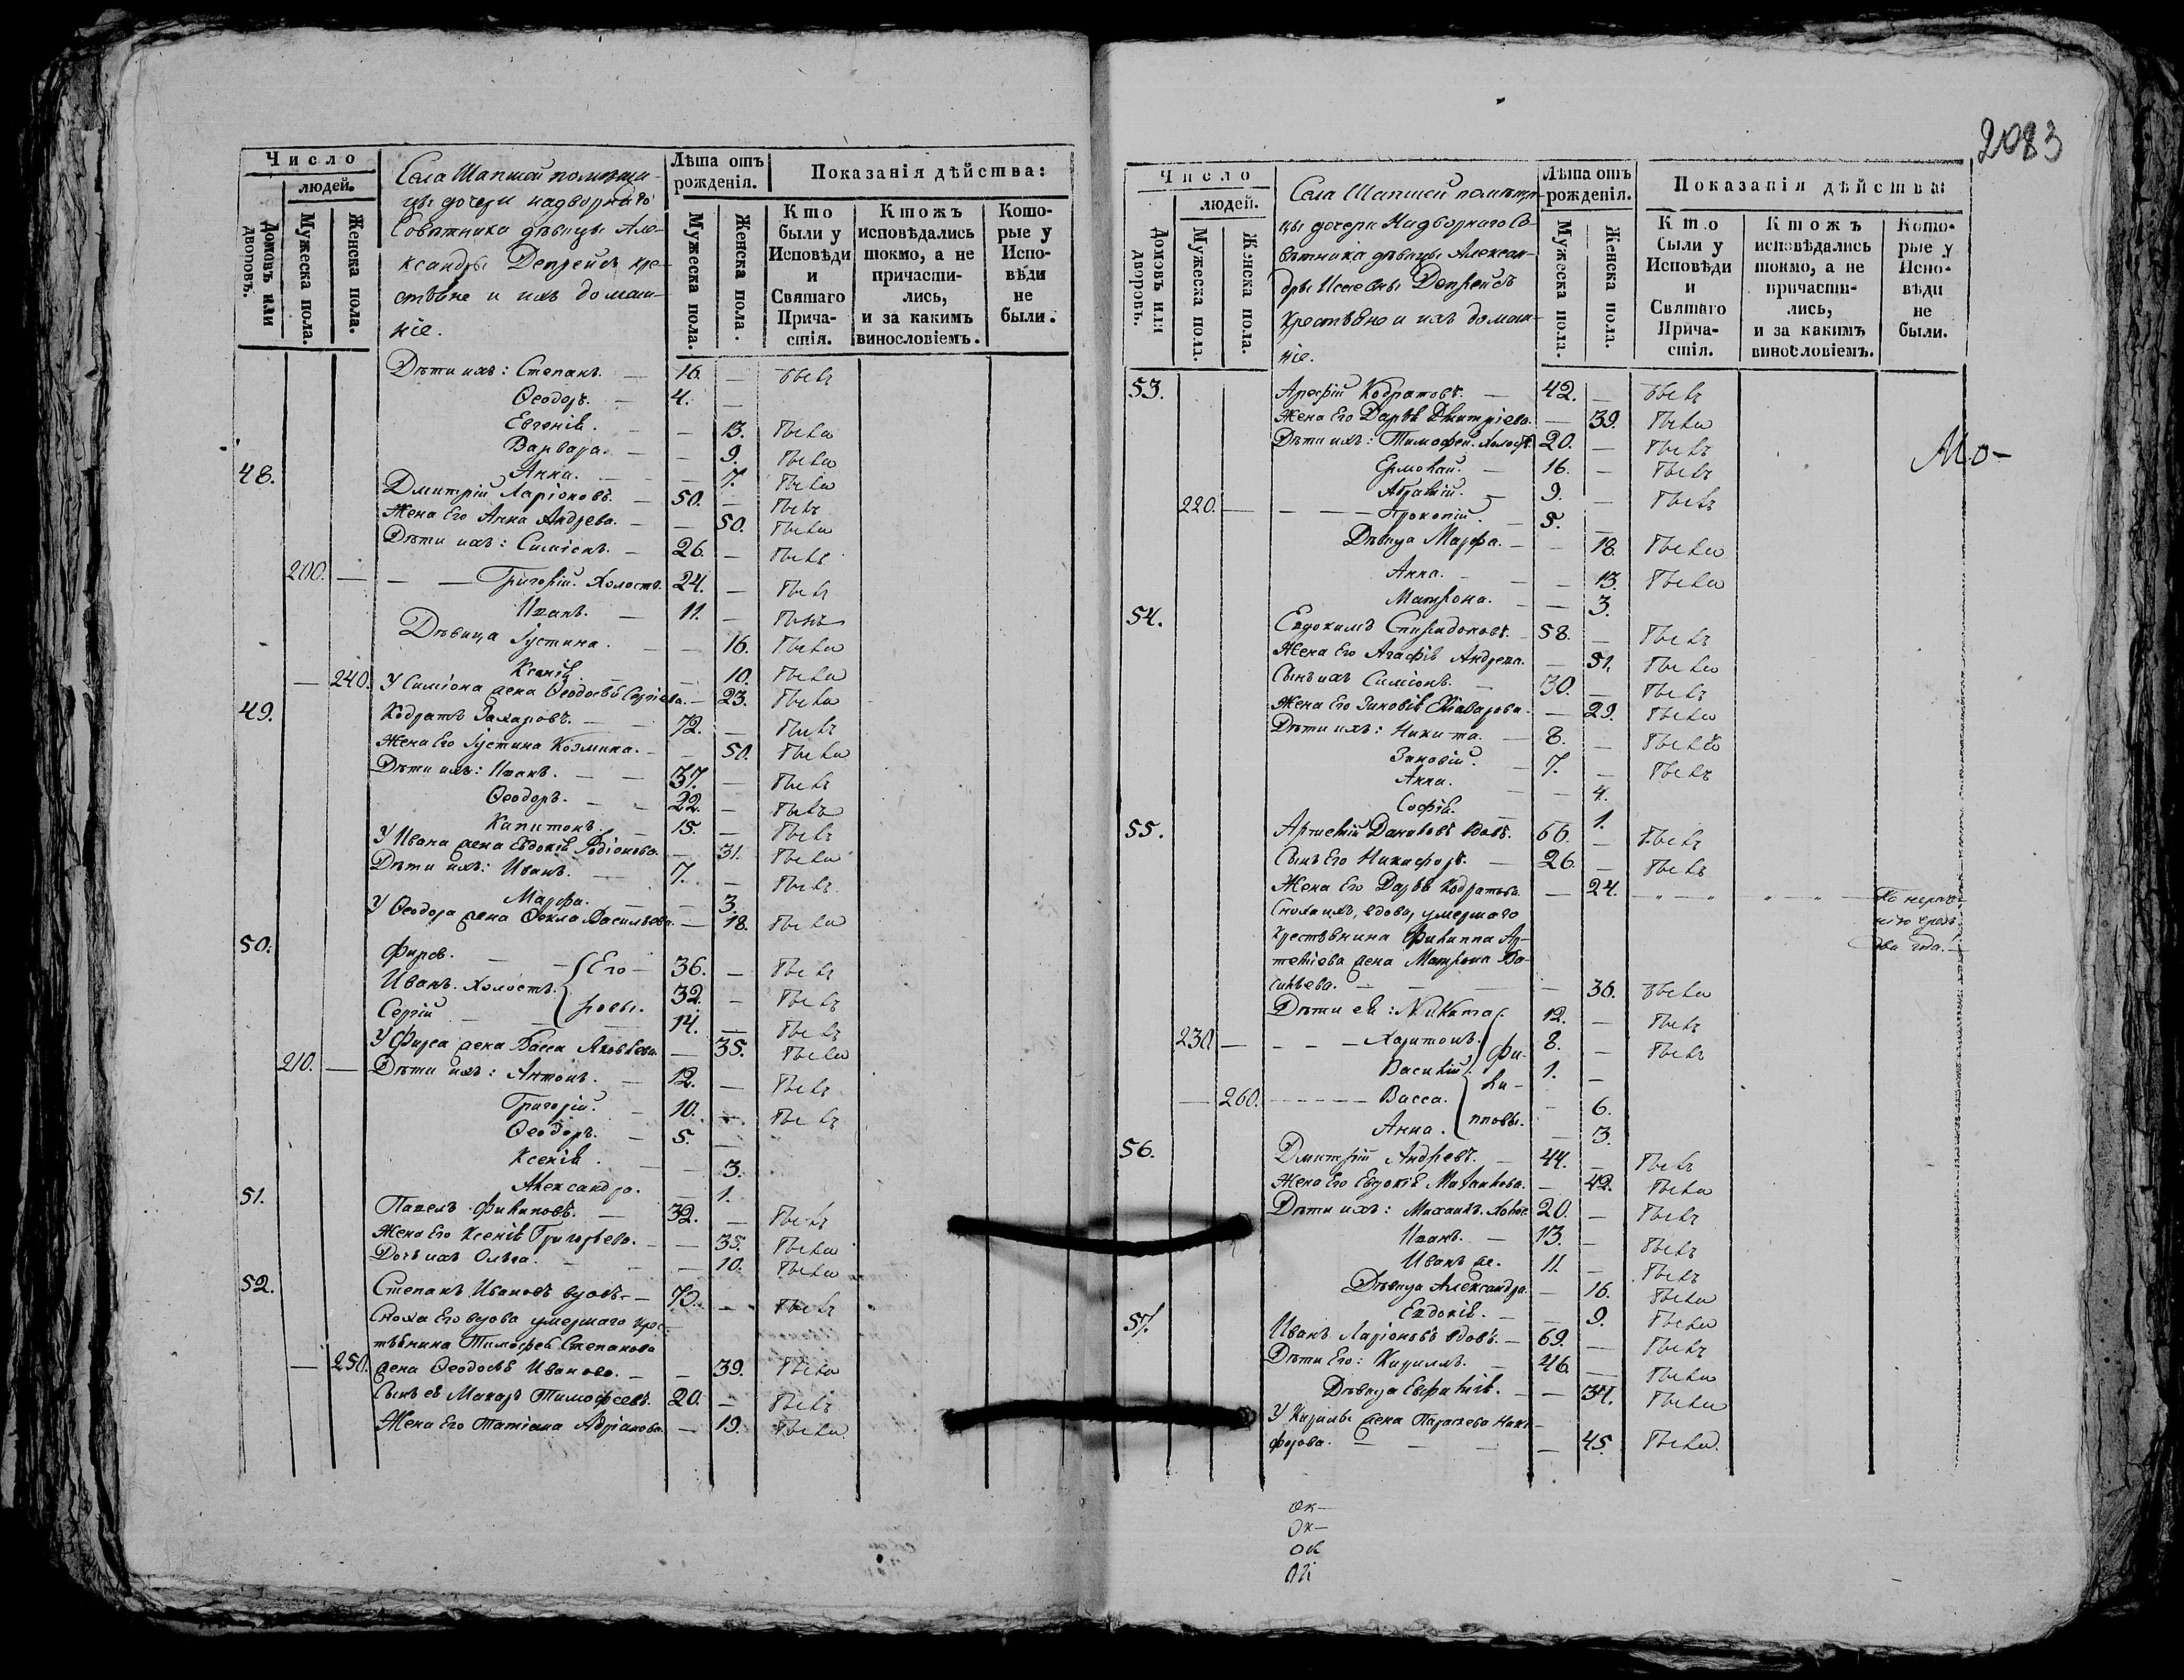 Число
людей.
Домовъ или дворовъ.
Мужеска пола.
Женска пола.
Села Шапшей помѣщи-
цы дочери надворнаго
Совѣтника дѣвицы Але-
ксандры Депрейсъ кре-
стьяне и ихъ домаш-
ніе.
Лѣта отъ рожденія.
Мужеска пола.
Женска пола.
Показанія дѣйства:
Кто были у Исповѣди и Святаго Прича-стія.
Ктожъ исповѣдались токмо, а не причасти-лись, и за какимъ винословіемъ.
Кото-рые у Испо-вѣди не были.
Дѣти ихъ: Степанъ. — 16. — былъ
Ѳеодоръ. — 4. —
Евгенія. — — 13. была
Варвара. — — 9. была
Анна. — — 7. была
48. Дмитрій Ларіоновъ. — 50. — былъ
Жена Его Анна Андрева. — — 50. была
Дѣти ихъ: Симіонъ. — 26. — былъ
200. — — — Григорій. Холостъ. 24. — былъ
Иванъ. — 11. — былъ
Дѣвица Іустина. — — 16. была
Ксенія. — — 10. была
— 240. У Симіона жена Ѳеодосья Сергіева. — 23. была
49. Кодратъ Захаровъ. — 72. — былъ
Жена Его Іустина Козмина. — — 50. была
Дѣти ихъ: Иванъ. — — 37. — былъ
Ѳеодоръ. — 22. — былъ
Капитонъ. — 15. — былъ
У Ивана жена Евдокія Родіонова. — 31. была
Дѣти ихъ: Иванъ. — 7. — былъ
Марфа. — — 3.
У Ѳеодора жена Ѳекла Васильева. — 18. была
50. Фирсъ. — — Его — 36. — былъ
Иванъ. Холостъ. 32. — былъ
Сергій — — 14. — былъ
У Фирса жена Васса Яковлева. — 35. была
210. — Дѣти ихъ: Антонъ. — 12. — былъ
Григорій. — 10. — былъ
Ѳеодоръ. — 5. —
Ксенія. — — 3.
Александра. — 1.
51. Павелъ Филиповъ. — 32. — былъ
Жена Его Ксенія Григорьева. — — 35. была
Дочь ихъ Ольга. — — — 10. была
52. Степанъ Ивановъ вдовъ. — 70. — былъ
Сноха Его вдова умершаго крес-
тьянина Тимофея Степанова
— 250. жена Ѳеодосья Иванова. — — 39. была
Сынъ ея Макаръ Тимофеевъ. 20. — былъ
Жена Его Татіана Адріанова. — 19. была
2083
Число
людей.
Домовъ или дворовъ.
Мужеска пола.
Женска пола.
Села Шапшей помѣщи-
цы дочери Надворнаго Со-
вѣтника дѣвицы Алексан-
дры Депрейсъ
Крестьяне и ихъ домаш-
ніе.
Лѣта отъ рожденія.
Мужеска пола.
Женска пола.
Показанія дѣйства:
Кто были у Исповѣди и Святаго Прича-стія.
Ктожъ исповѣдались токмо, а не причасти-лись, и за какимъ винословіемъ.
Кото-рые у Испо-вѣди не были.
53. Арефій Кодратовъ. — 42. — былъ
Жена Его Дарья Дмитріева. — 39. была
Дѣти ихъ: Тимофей. холост. 20. — былъ
Ермолай. — 16. — былъ
9. — былъ
220. — — — — Прокопій. — 5. —
Дѣвица Марфа. — — 18. была
Анна. — — 13. была
Матрона. — — 3.
54. Евдокимъ Спиридоновъ. — 58. — былъ
Жена Его Агафья Андрева. — 51. была
Сынъ ихъ Симіонъ. — 30. — былъ
Жена Его Зиновія — 29. была
Дѣти ихъ: Никита. — 8. — былъ
Зиновій. — 7. — былъ
Анна. — — 4.
Софія. — 1.
55. Артемій Даниловъ вдовъ. 66. — былъ
Сынъ Его Никифоръ. — 26. — былъ
Жена Его Дарья Кодратова. — 24. — " — " " — " — По нераче-
нію чрезъ
два года. —
Сноха ихъ, вдова, умершаго
Крестьянина Филиппа Ар-
темьева жена Матрона Ва-
сильева. — — — — 36. была
Дѣти ея: Никита 12. — былъ
230. — — — — Харитонъ. Фи- 8. — былъ
Василій. ли- 1. —
— 260. — — — — Васса. — 6.
Анна. пповы. — 3.
56. Дмитрій Андревъ. — 44. — былъ
Жена Его Евдокія — 42. была
Дѣти ихъ: Михаилъ. Холос. 20. — былъ
Иванъ. — 13. — былъ
Иванъ же. — 11. — былъ
Дѣвица Александра. — 16. была
Евдокія. — — 9. была
57. Иванъ Ларіоновъ вдовъ. — 69. — былъ
Дѣти Его: Кириллъ. — 46. — была
Дѣвица Евфимія. — — 34. была
У Кирилы жена Парасева Ники-
форова. — — — — 45. была